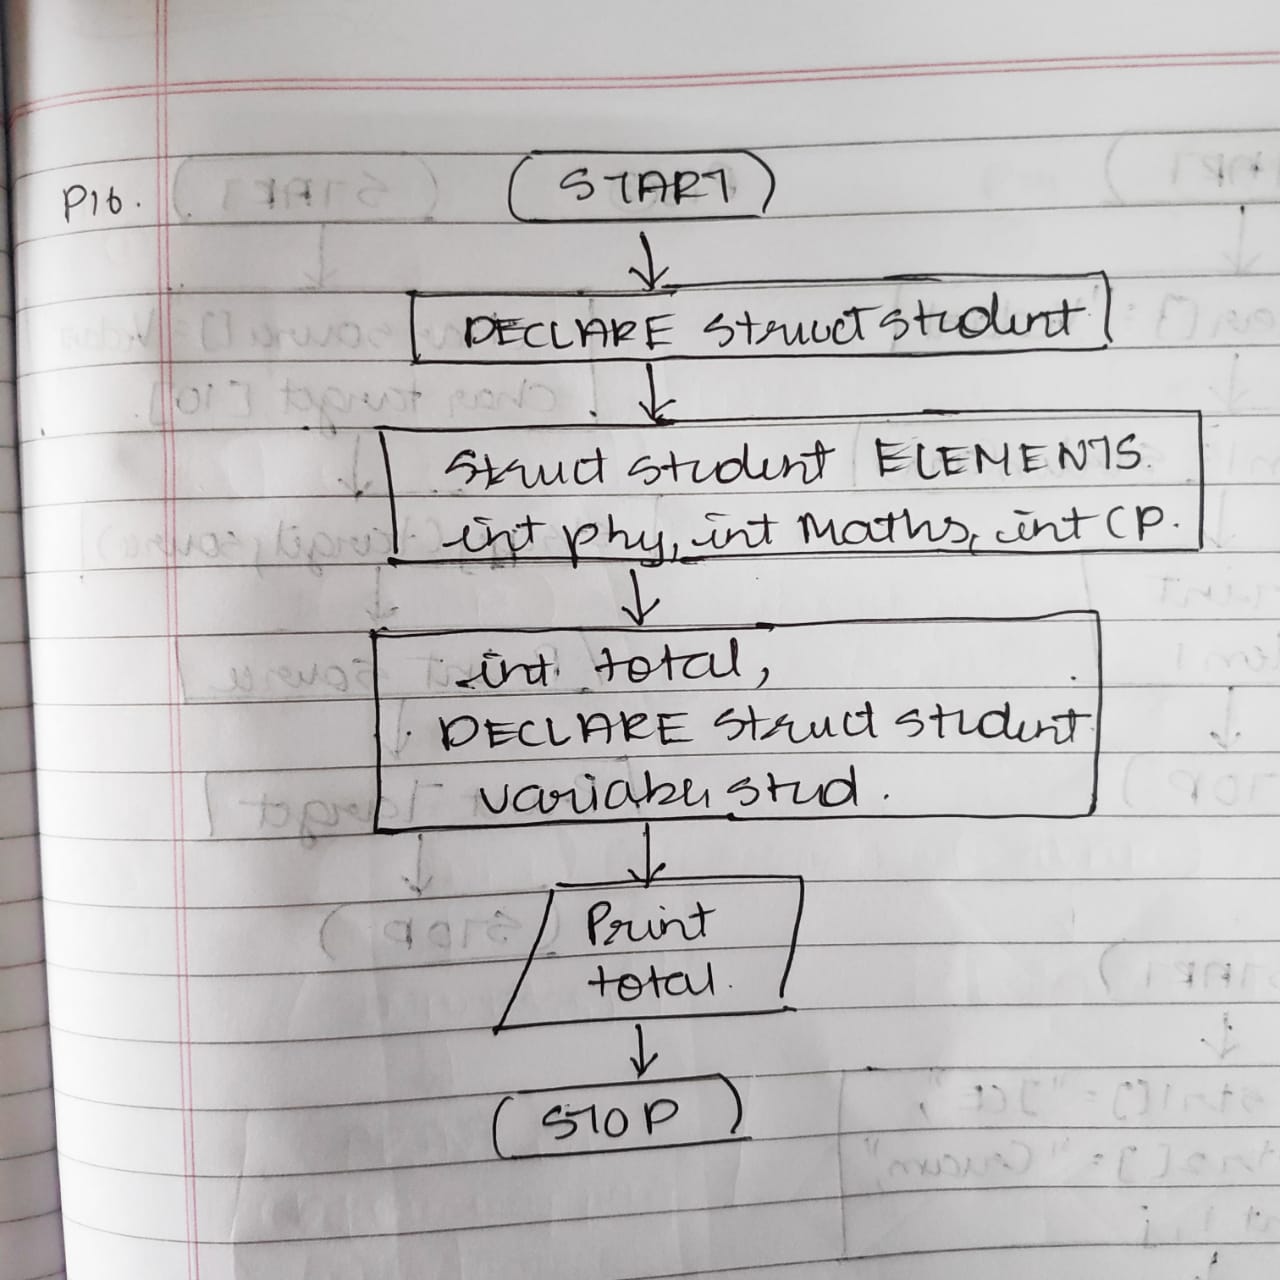 P16.
START
DECLARE struct student
struct student ELEMENTS.
int phy, int Maths, int CP.
int total,
DECLARE struct student
variable stud.
Print
total.
STOP